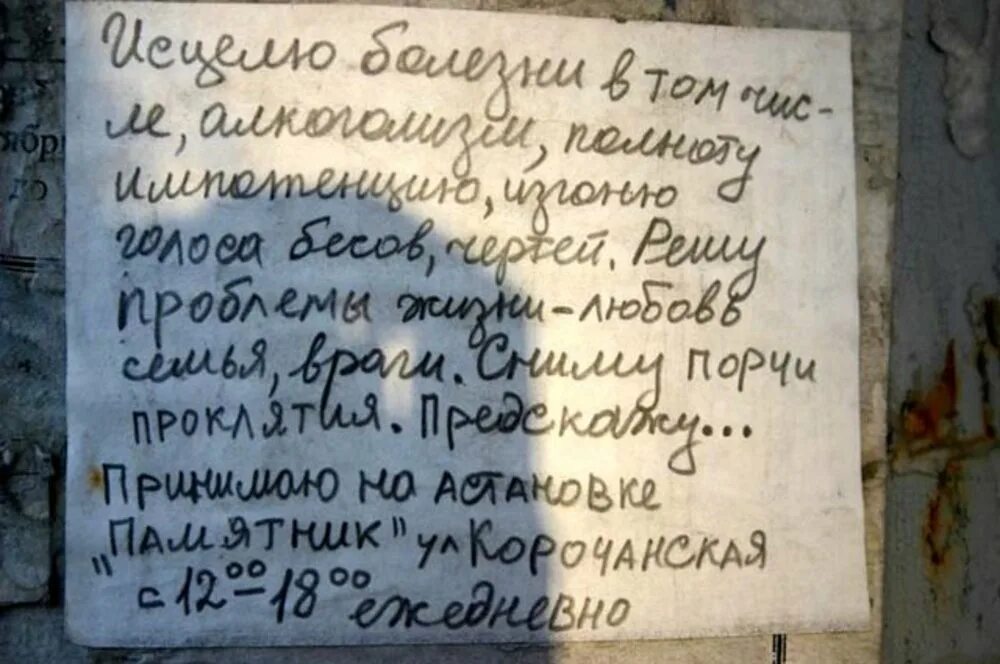 Исцелю болезни в том чис-
ле, алкоголизм, полноту
импотенцию, изгоню
голоса бесов, чертей. Решу
проблемы жизни-любовь
семья, враги. Сниму порчи
проклятия. Предскажу...
Принимаю на астановке
"Памятник" ул Корочанская
с 12⁰⁰-18⁰⁰ ежедневно
ябр
до